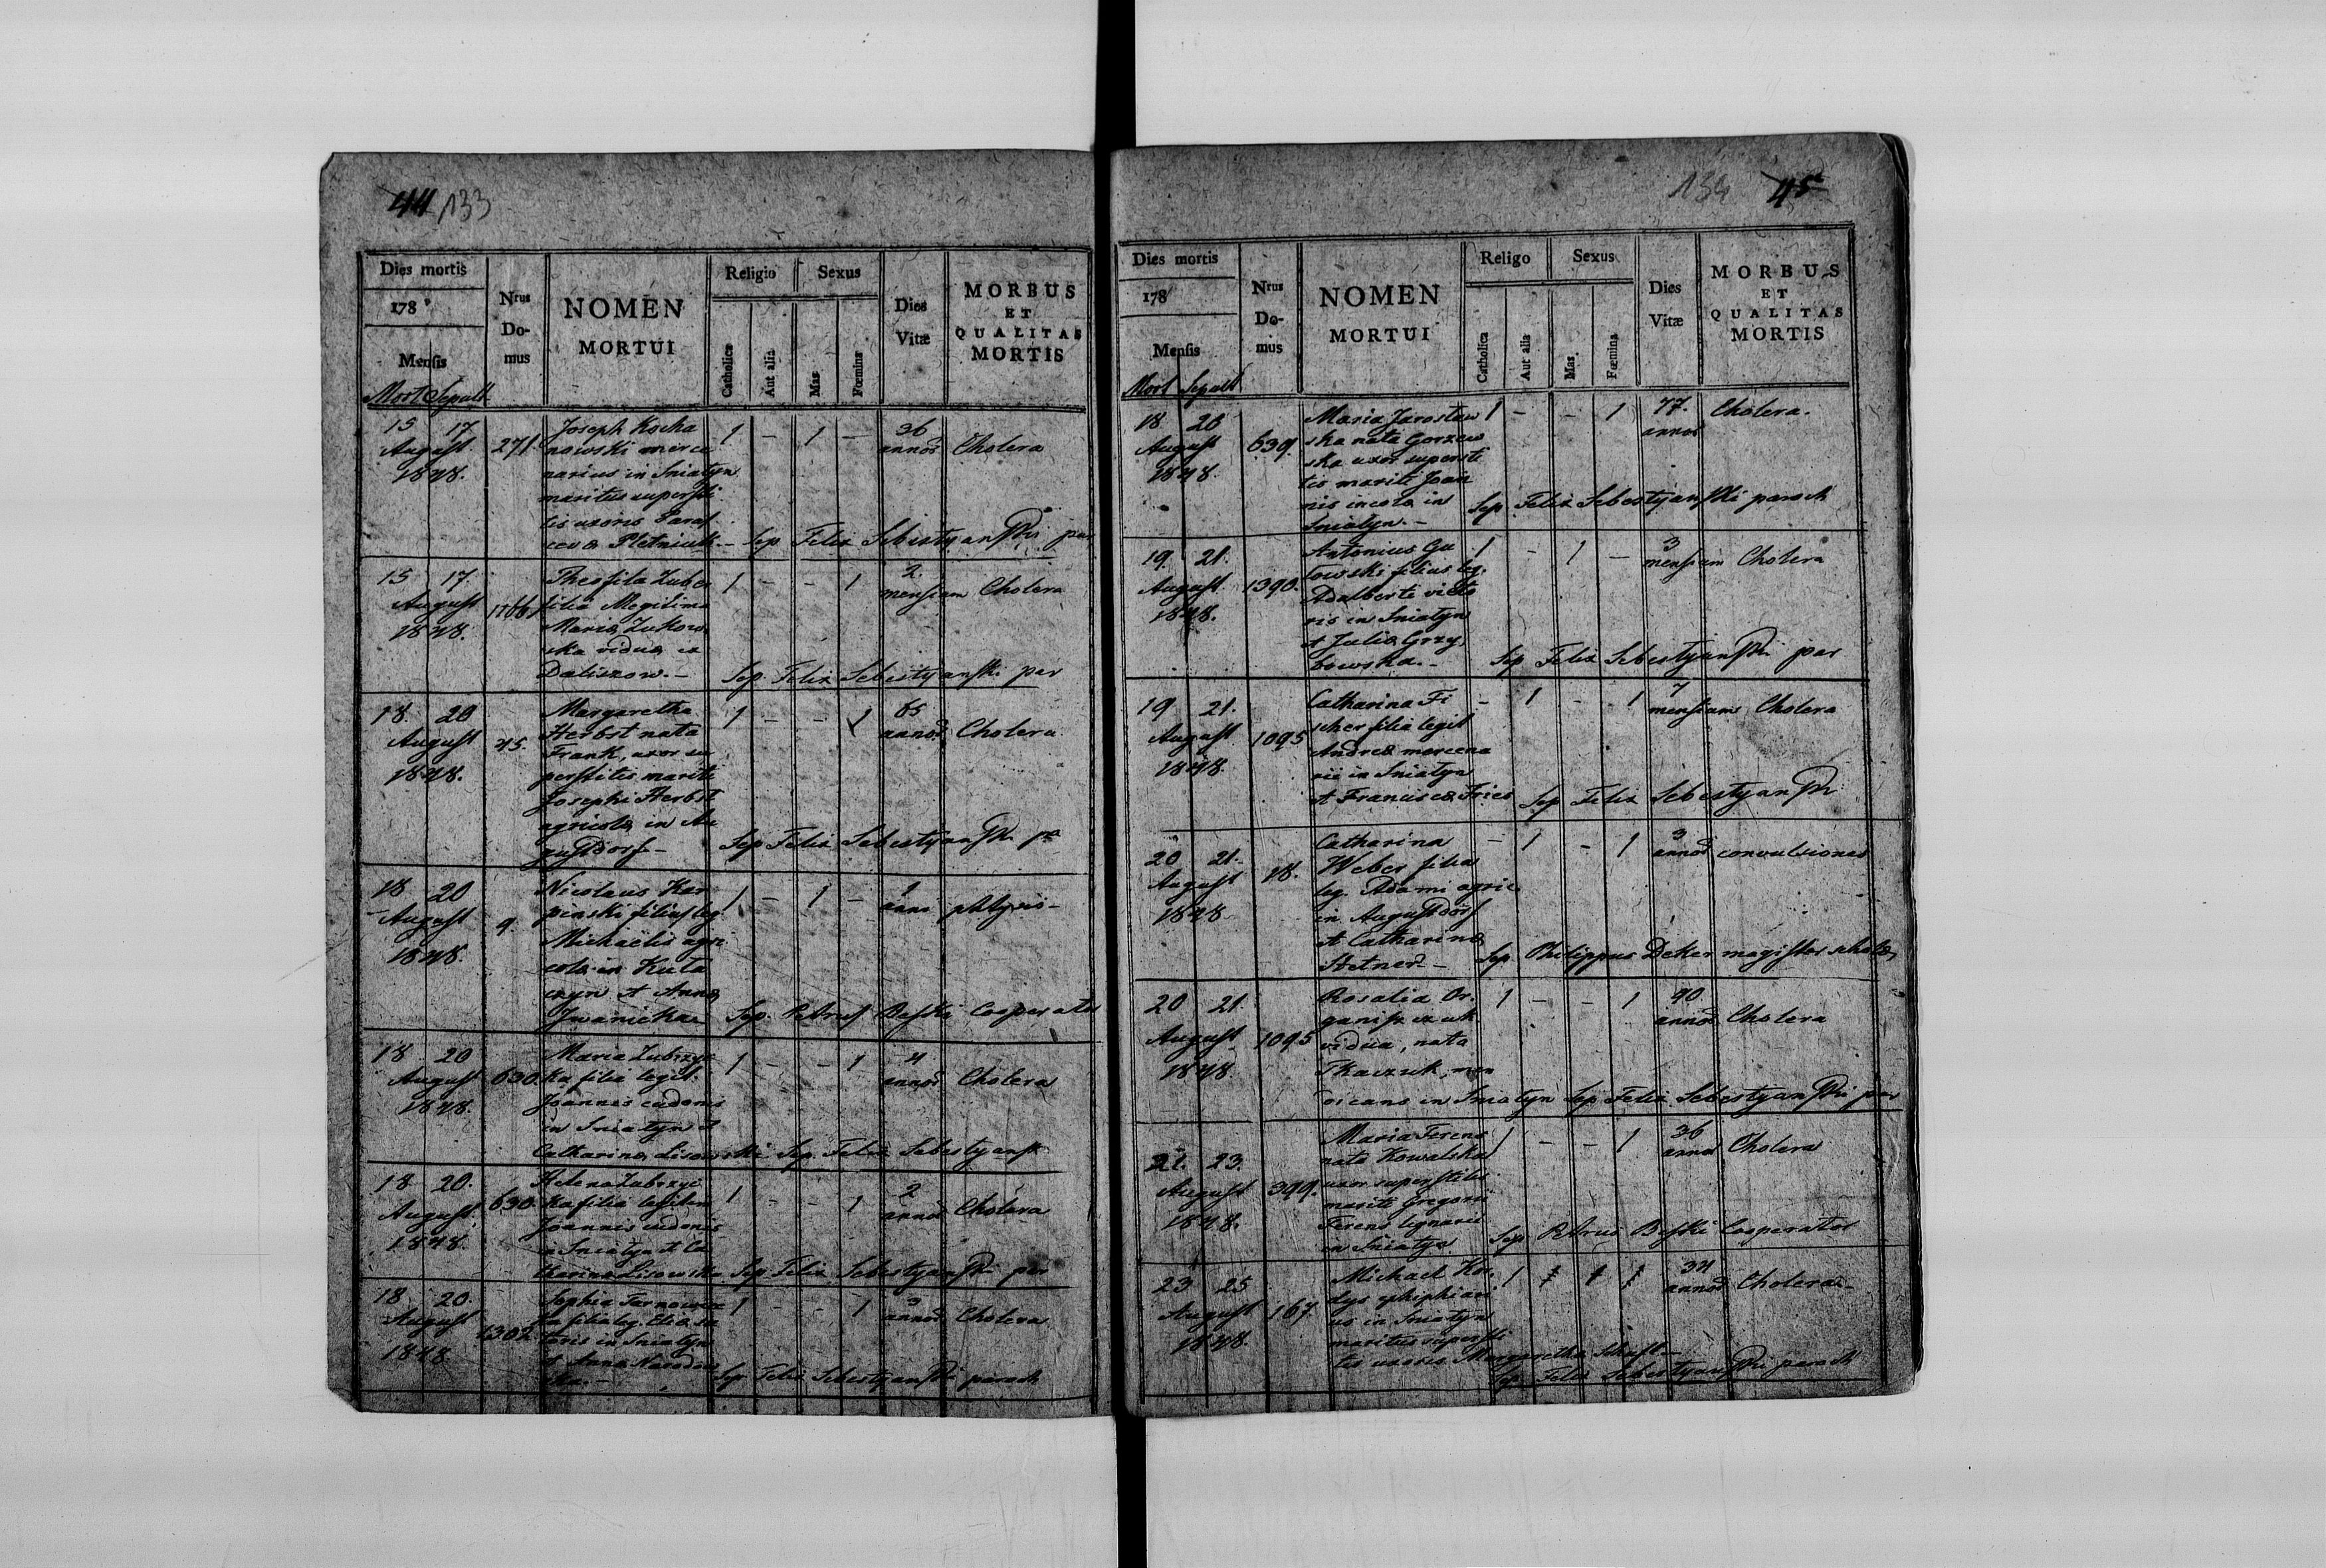 44 133
Dies mortis
178
Mensis
Mort Sepult
Nrus Do-mus
NOMEN
MORTUI
Religio
Catholica
Aut alia
Sexus
Mas
Fœmina
Dies Vitæ
MORBUS
ET
QUALITAS
MORTIS
15 17 August 1848. 271.
Joseph Kocha
nowski merce
narius in Sniatyn
maritus supersti
tis uxoris Paras
ceva Pletniuk.
1 – 1 – 36 annor Cholera
Sep Felix Sebestyanski par
15 17. August 1848.
Theofila Zuber
filia illegitima
Maria Zukow
ska vidua ex
1 – – 1 2. mensium Cholera
Sep. Felix Sebestyanski par
18. 20 August 1848. 45.
Margaretha
Herbst nata
Frank, uxor su
perstitis mariti
Josephi Herbst
agricola in Au
gustdorf –
1 – – 1 65 annor. Cholera
Sep Felix Sebestyanski
18 20 August 1848. 9.
Nicolaus Kar
pinski filius leg.
Michaelis agri
cola in Kuta
czyn et Anna
1 – 1 – 1 anni phtysis –
Sep. Petrus Beski Cooperator
18 20 August 1848. 630.
Maria Zubrzyc
ka filia legit.
Joannis cudonis
in Sniatyn et
Catharina Lisowski
1 – – 1 4 annor Cholera
Sep. Felix Sebestyansk
18 20. August 1848. 630.
Helena Zubrzyc
ka filia legitim
Joannis cudonis
in Sniatyn et Ca
tharina Lisowska
1 – – 1 2 annor Cholera
Sep Felix Sebestyanski par
18 20. August 1848 1302.
Sophia Tarnowiec
ka filia leg. Elia su
toris in Sniatyn
et Anna
1 – – 1 3 annor Cholera
Sep Felix Sebestyanski paroch
134 45
Dies mortis
178
Mensis
Mort Sepult
Nrus Do-mus
NOMEN
MORTUI
Religo
Catholica
Aut alia
Sexus
Mas
Fœmina
Dies Vitæ
MORBUS
ET
QUALITAS
MORTIS
18 20 August 1848. 639.
Maria Jaroslaw
ska nata Gorzew
ska uxor supersti
tis mariti Joan
nis incola in
Sniatyn. –
1 – – 1 77. annor Cholera.
Sep Felix Sebestyanski paroch
19. 21. August 1848. 1390.
Antonius Gu
towski filius leg.
Adalberti vieto
ris in Sniatyn
et Julia Grzy
bowska. –
1 – 1 – 3 mensium Cholera
Sep Felix Sebestyanski par
19 21. August 1848. 1095
Catharina Fi
scher filia legit
Andrea mercena
rii in Sniatyn
et Francisca Fries
– 1 – 1 7 mensium Cholera
Sep Felix Sebestyanski
20 21. August 1848 18.
Catharina
Weber filia
leg. Adami agric.
in Augustdorf
et Catharina
– 1 – 1 3 annor convulsiones
Sep. Philippus Deker magister schola
20 21. August 1848. 1095
Rosalia Or
ganiszczuk
vidua, nata
Tkaczuk, men
dicans in Sniatyn
1 – – 1 90 annor Cholera
Sep Felix Sebestyanski par
21. 23. August 1848. 399.
Maria Ferens
nata Kowalska
uxor superstitis
mariti Gregorii
Ferens lignarii
in Sniatyn
1 – – 1 36 annor Cholera
Sep Petrus Beski Cooperator
23 25 August 1848. 167
Michael Kor
dys ephiphiari
us in Sniatyn
maritus supersti
tis uxoris Margaretha
34 annor Cholera –
Sep Felix Sebestyanski paroch